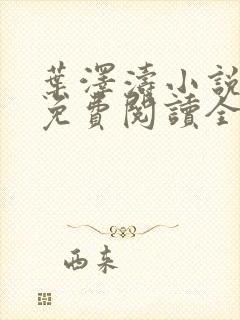 葉澤濤小說
免費閱讀全
西來